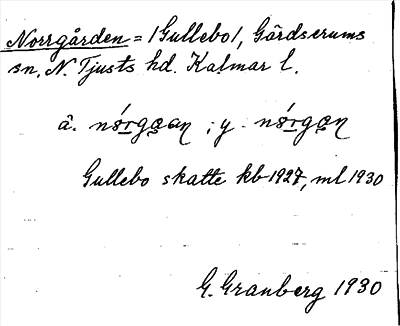 Norrgården = /Gullebo/, Gärdserums
sn, N. Tjusts hd. Kalmar l.
ä. nórgaan ; y. nórgan
Gullebo skatte kb 1927, ml 1930
G. Granberg 1930